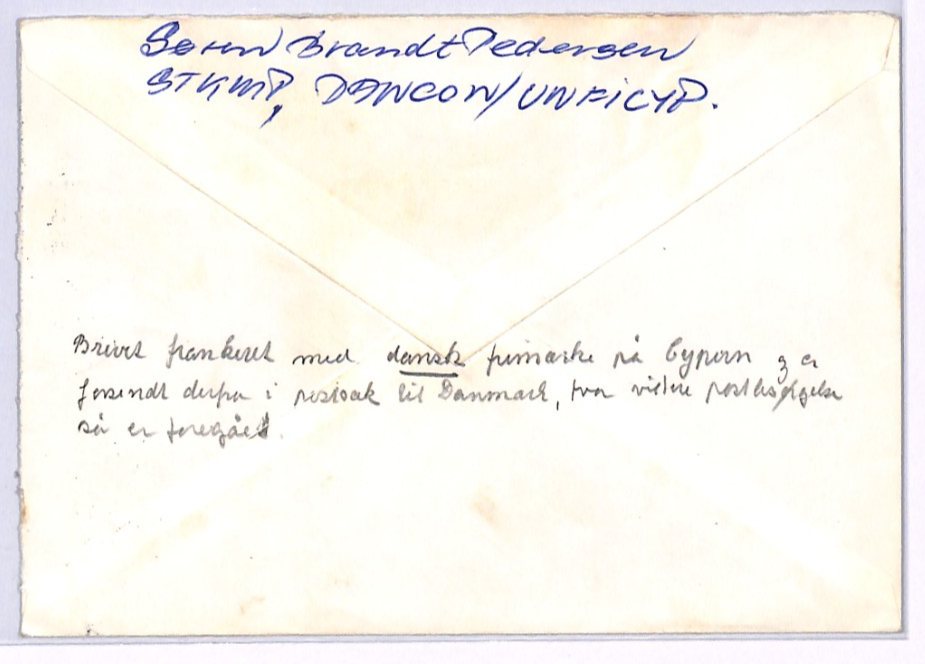 Søren Brandt Pedersen
STKMP, DANCON/UNFICYP.
Brevet frankeret med dansk frimærke på Cypern og er
forsendt derfra i postsæk til Danmark, hvor videre
så er foregået.